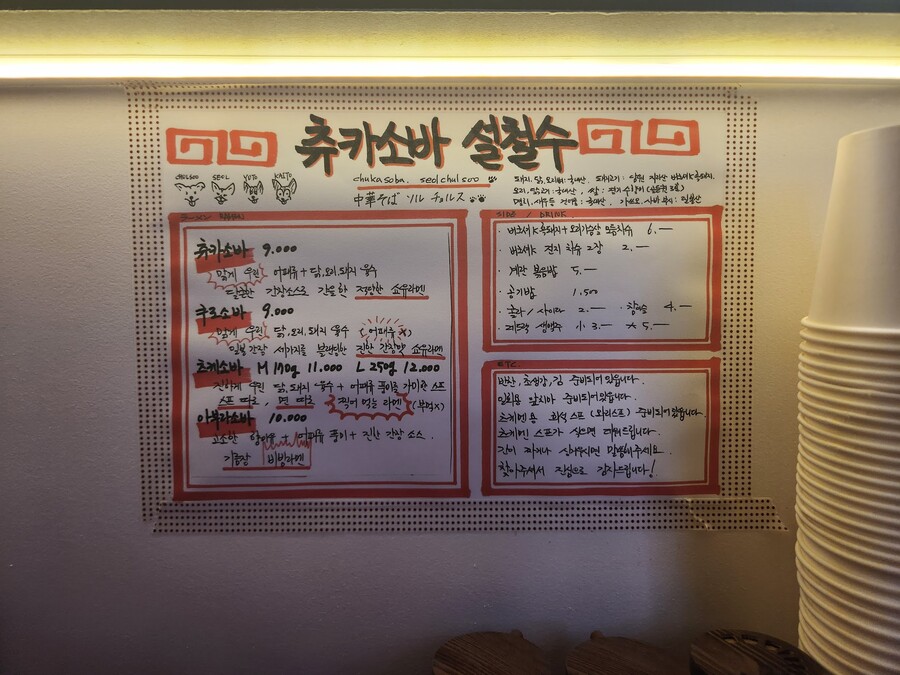 츄카소바 설철수
CHULSOO SEOL YUTO KAITO
chukasoba. seolchulsoo
中華そば ソル チョルス
돼지, 닭, 오리뼈: 국내산, 돼지고기: 남원 지리산 버크셔K흑돼지,
오리, 닭고기: 국내산, 쌀:
멸치, 새우등 건어물: 국내산, 가쓰오, 사바 부시: 일본산
츄카소바 9.000
맑게 우린 어패류 + 닭, 오리, 돼지 육수
달콤한 간장소스로 간을한 적당한 쇼유라멘
쿠로소바 9.000
맑게 우린 닭, 오리, 돼지 육수 (어패류 X)
일본간장 세가지를 블랜딩한 진한 간장맛 쇼유라멘
츠케소바 M 170g 11.000 L 250g 12.000
진하게 우린 닭, 돼지 육수 + 어패류 풍미를 가미한 스프
스프 따로, 면 따로 찍어 먹는 라멘 (부먹X)
아부라소바 10.000
고소한 향미유 + 어패류 풍미 + 진한 간장 소스.
기름장 비빔라멘
SIDE / DRINK
· 버크셔K 흑돼지 + 오리가슴살 모듬차슈 6.—
· 버크셔K 전지 차슈 2장 2.—
· 계란 볶음밥 5.—
· 공기밥 1.500
· 콜라 / 사이다 2.— 하이볼 4.—
· 레드락 생맥주 小 3.— 大 5.—
ETC.
반찬, 초생강, 김 준비되어있습니다.
일회용 앞치마 준비되어있습니다.
츠케멘용 희석 스프 (와리스프) 준비되어있습니다.
츠케멘 스프가 식으면 데워드립니다.
간이 짜거나 싱거우시면 말씀해주세요.
찾아주셔서 진심으로 감사드립니다!